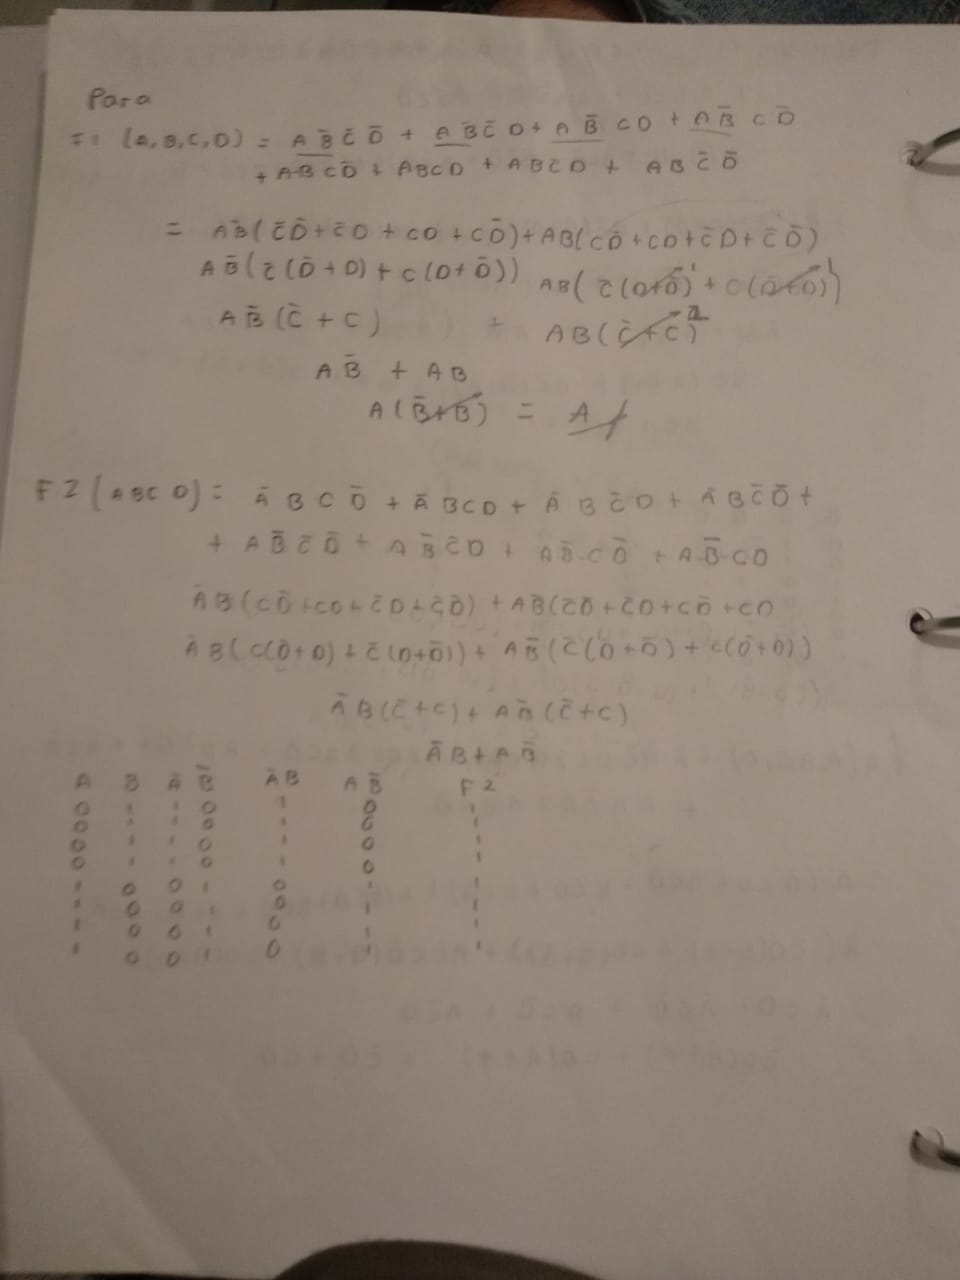 Para
F1 (A,B,C,D) = A B̄ C̄ D̄ + A B̄ C̄ D + A B̄ C D + A B̄ C D̄
+ A B C D̄ + A B C D + A B C̄ D + A B C̄ D̄
= A B̄ ( C̄ D̄ + C̄ D + C D + C D̄ ) + A B ( C D̄ + C D + C̄ D + C̄ D̄ )
A B̄ ( C̄ ( D̄ + D ) + C ( D + D̄ ) ) A B ( C̄ ( D + D̄ ) 1 + C ( D̄ + D ) 1 )
A B̄ ( C̄ + C ) + A B ( C̄ + C ) 1
A B̄ + A B
A ( B̄ + B ) = A
F2 ( A B C D ) = Ā B C D̄ + Ā B C D + Ā B C̄ D + Ā B C̄ D̄ +
+ A B̄ C̄ D̄ + A B̄ C̄ D + A B̄ C D̄ + A B̄ C D
Ā B ( C D̄ + C D + C̄ D + C̄ D̄ ) + A B̄ ( C̄ D̄ + C̄ D + C D̄ + C D
Ā B ( C ( D̄ + D ) + C̄ ( D + D̄ ) ) + A B̄ ( C̄ ( D + D̄ ) + C ( D̄ + D ) )
Ā B ( C̄ + C ) + A B̄ ( C̄ + C )
Ā B + A B̄
A B Ā B̄ Ā B A B̄ F2
0 1 1 0 1 0 1
0 1 1 0 1 0 1
0 1 1 0 1 0 1
0 1 1 0 1 0
1 0 0 1 0 1 1
1 0 0 1 0 1 1
1 0 0 1 0 1 1
1 0 0 1 0 1 1